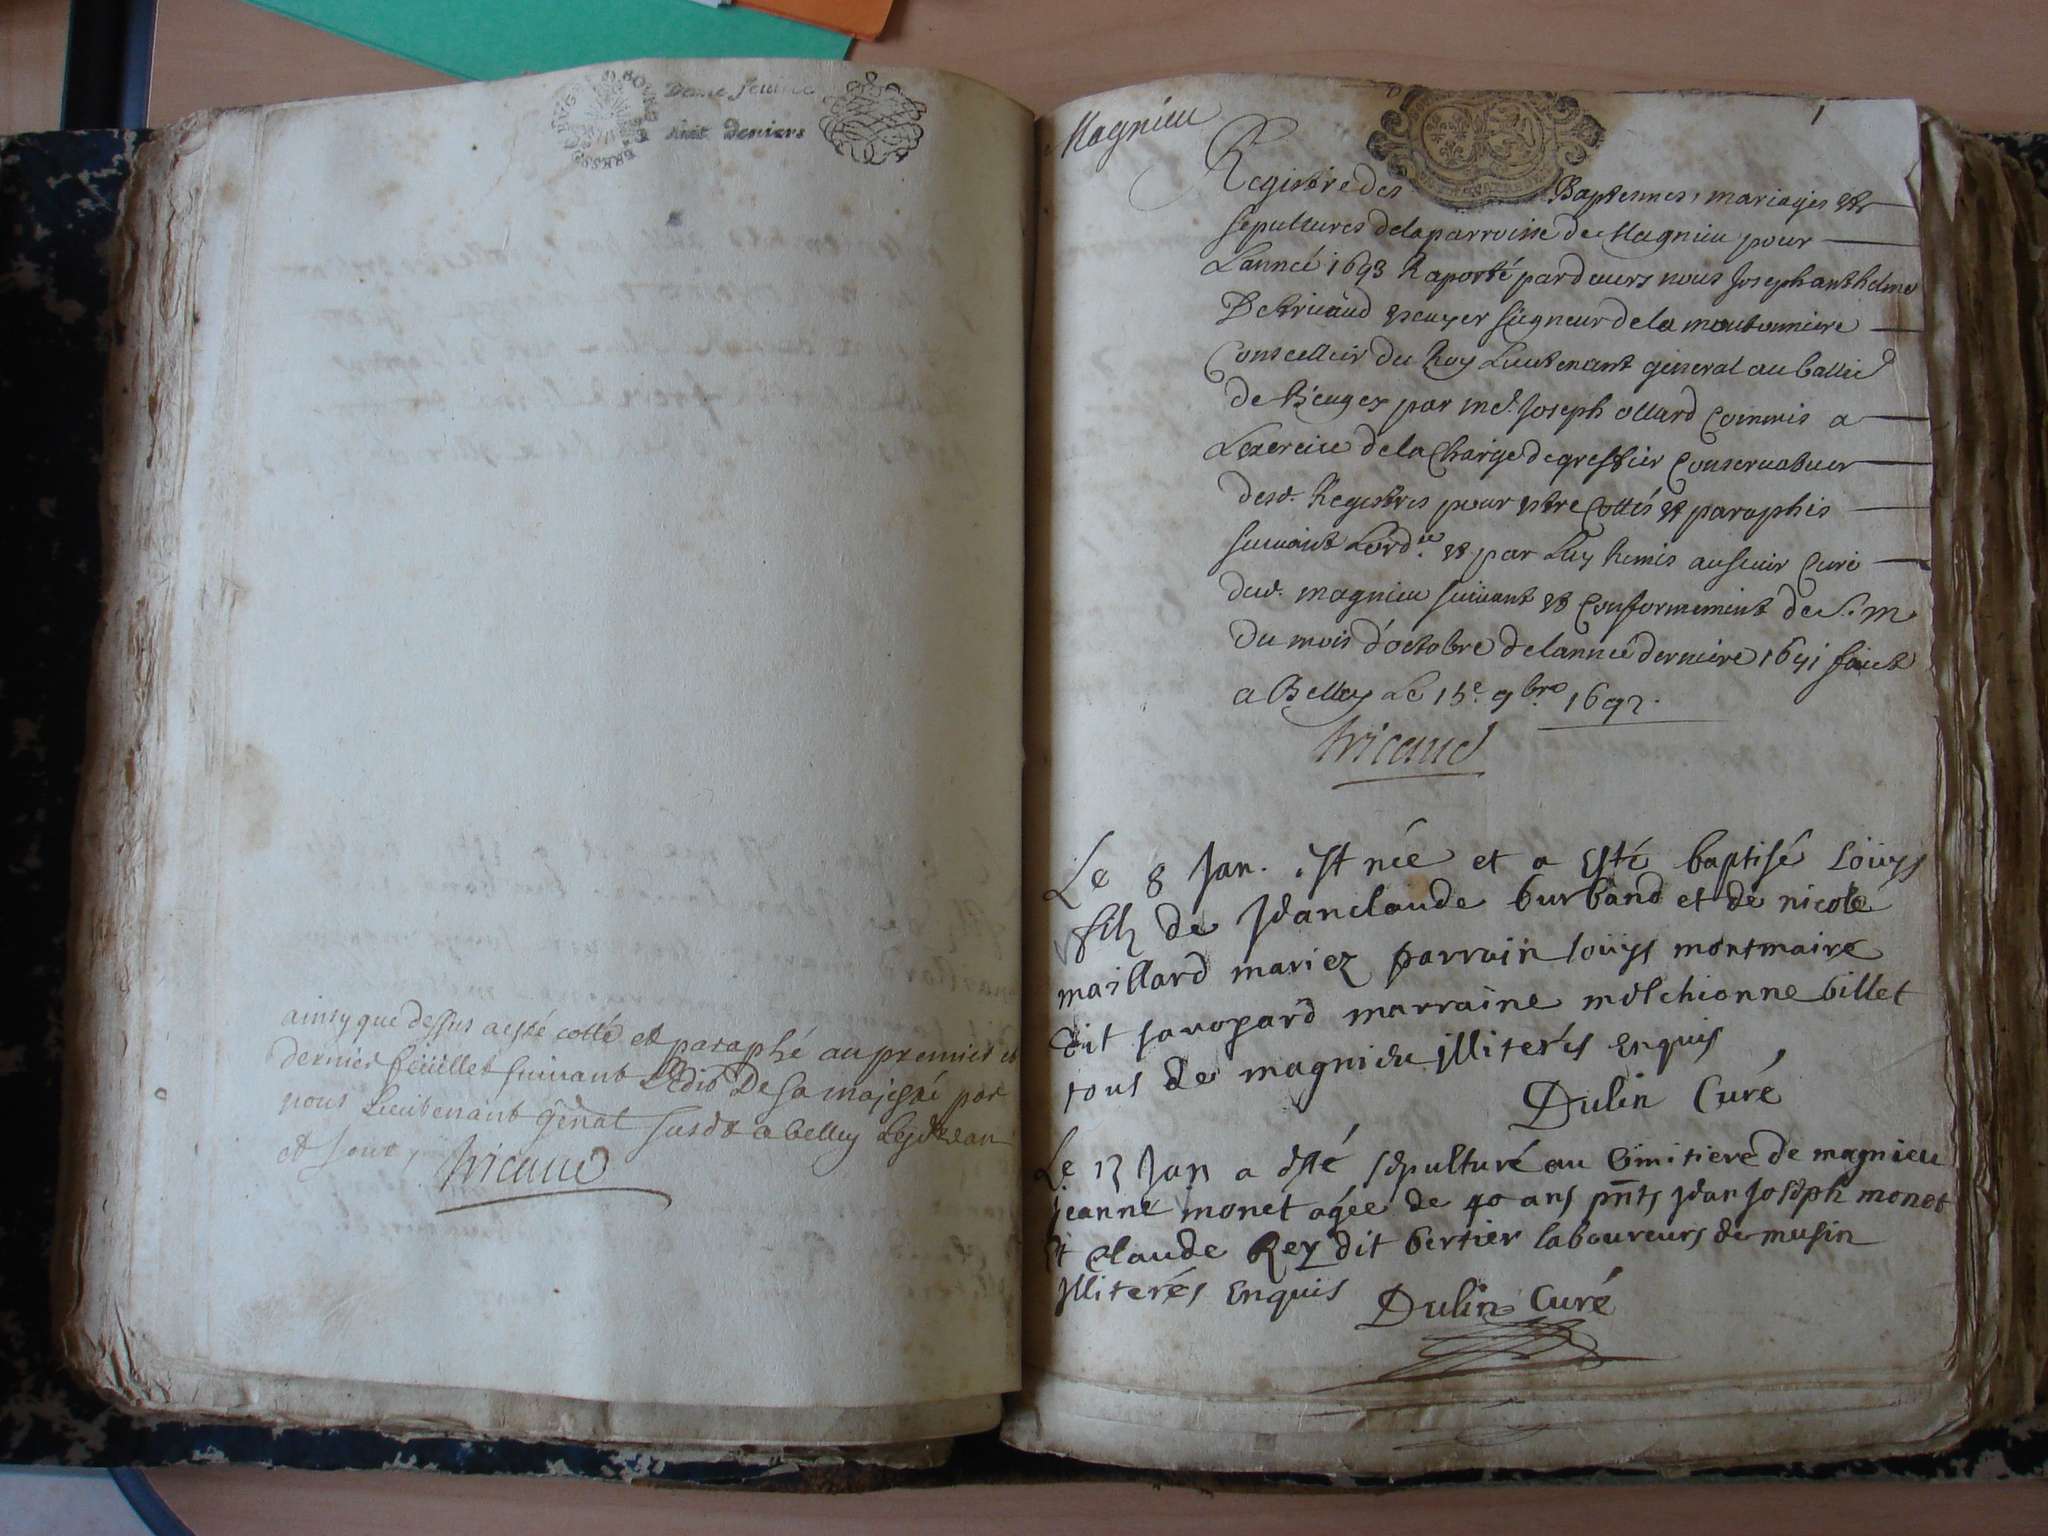 BOURG BRESSE
Demie feuille
huit deniers
ainsy que dessus a esté cotté et paraphé au premier et
dernier feüillet suivant Ledit De Sa majesté par
nous Lieutenant gñal susdt a belley Lesd. Jan
et jour,
Tricaud
Magnieu
1
Registre des Baptesmes, mariages et
sepultures de la parroisse de Magnieu pour
Lanneé 1693 Raporté pardeuers nous Joseph anthelme
De tricaud escuyer seigneur de la moutonniere
Conseiller du Roy Lieutenant general au bailla
de Beugey par me. Joseph ollard Commis a
Lexercice de la Charge de greffier Conseruateur
desd. Registres pour estre Cottés et paraphés
suiuant Lord.ce et par Luy Remis au sieur Curé
dud. magnieu suiuant et Conformement de S. m
Du mois d'octobre de lanneé derniere 1691 faict
a Belley Le 15e 9bre 1692.
Tricaud
Le 8 Jan. est née et a esté baptisé Loüys
filz de Jeanclaude burband et de nicole
maillard mariez parrain loüys montmaire
dit sauoyard marraine melchionne billet
tous de magnieu jlliterés enquis
Dulin Curé
Le 13 Jan a esté sepulturé au cimitiere de magnieu
jeanne monet agée de 40 ans pñts jean joseph monet
et claude Rey dit bertier laboureurs de musin
jlliterés enquis
Dulin Curé